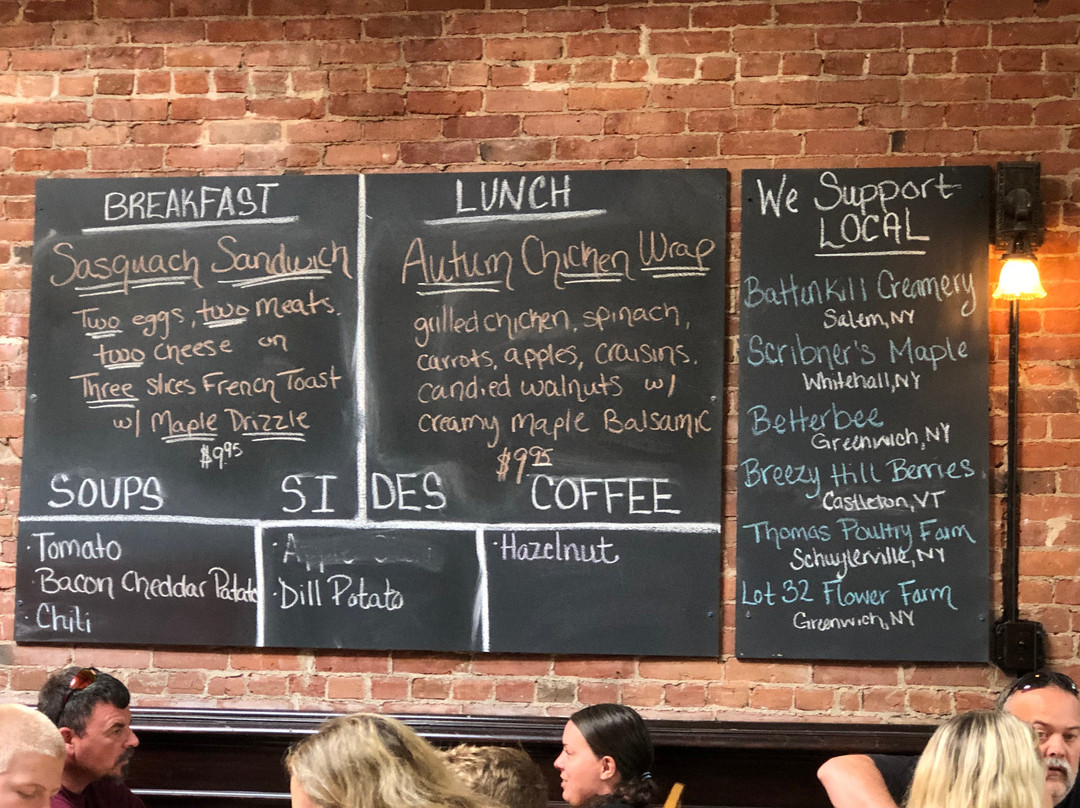 BREAKFAST
Sasquach Sandwich
Two eggs, two meats.
two cheese on
Three slices French Toast
w/ Maple Drizzle
$9.95
LUNCH
Autum Chicken Wrap
grilled chicken, spinach,
carrots, apples, craisins.
candied walnuts w/
creamy Maple Balsamic
$9.95
SOUPS
· Tomato
· Bacon Cheddar Potato
· Chili
SIDES
· Apple
· Dill Potato
COFFEE
· Hazelnut
We Support
LOCAL
Battenkill Creamery
Salem, NY
Scribner's Maple
Whitehall, NY
Betterbee
Greenwich, NY
Breezy Hill Berries
Castleton, VT
Thomas Poultry Farm
Schuylerville, NY
Lot 32 Flower Farm
Greenwich, NY